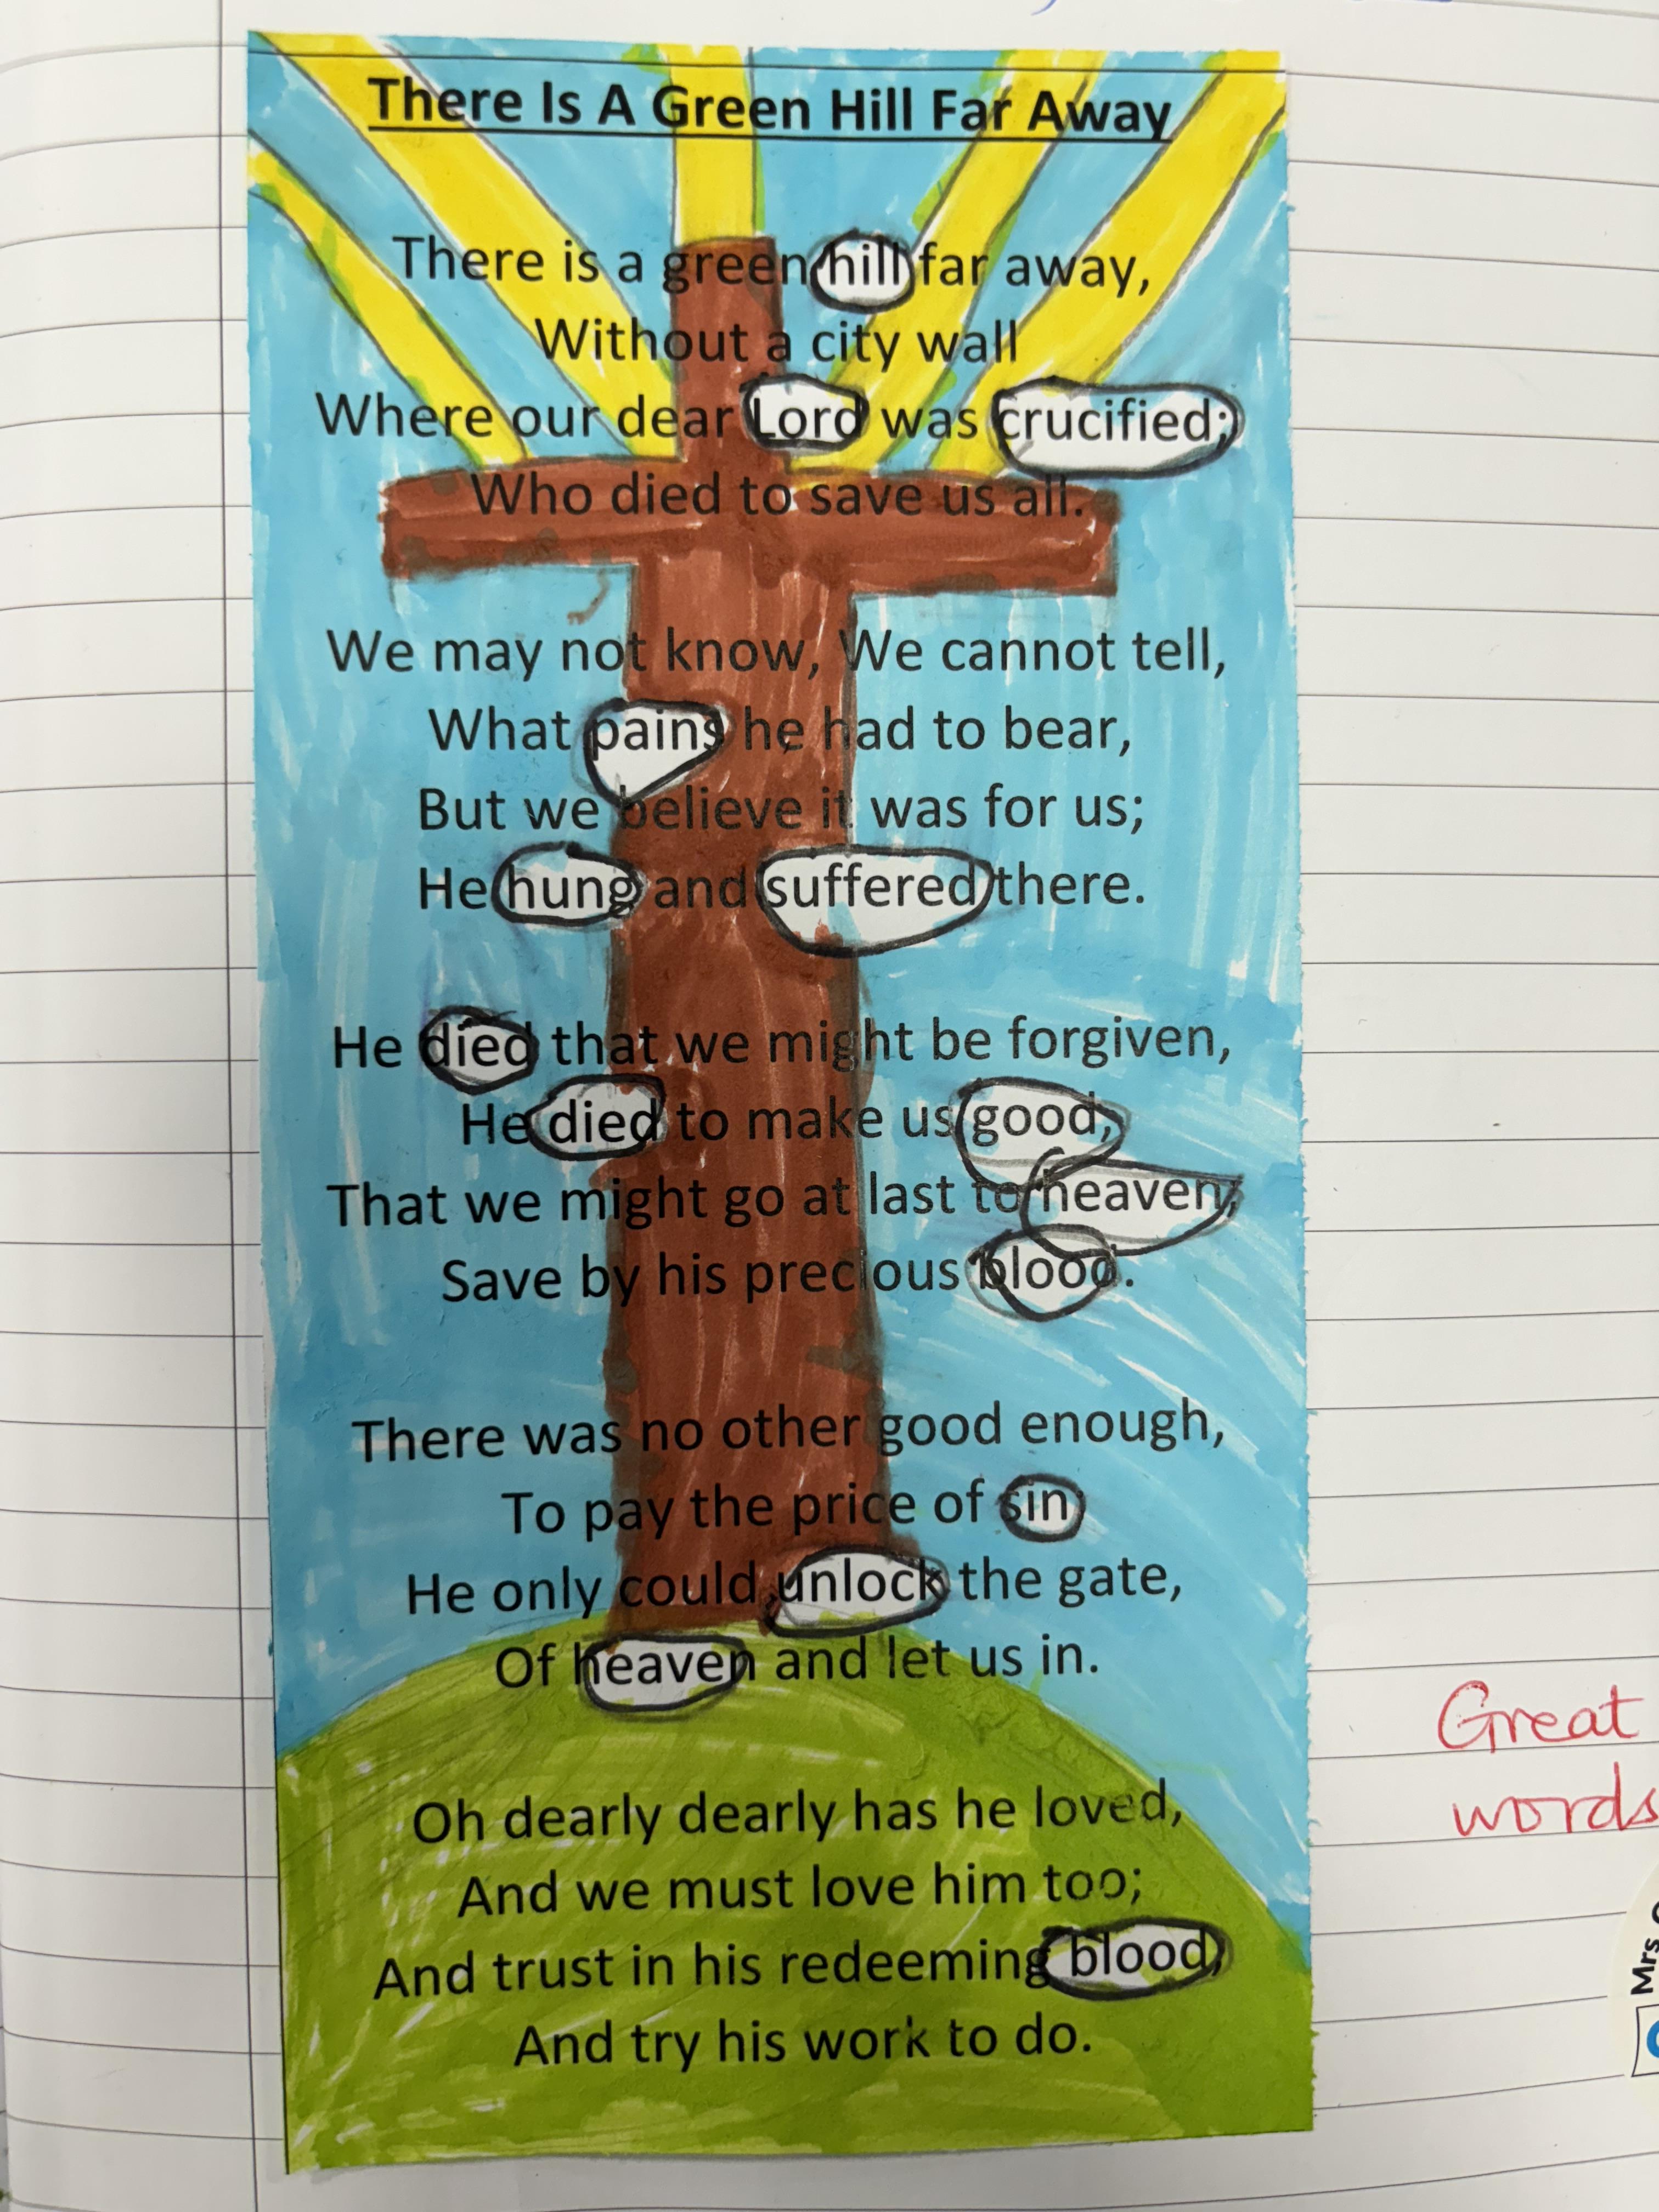 There Is A Green Hill Far Away
There is a green hill far away,
Without a city wall
Where our dear Lord was crucified;
Who died to save us all.
We may not know, We cannot tell,
What pains he had to bear,
But we believe it was for us;
He hung and suffered there.
He died that we might be forgiven,
He died to make us good,
That we might go at last to heaven,
Save by his precious blood.
There was no other good enough,
To pay the price of sin
He only could unlock the gate,
Of heaven and let us in.
Great
words
Oh dearly dearly has he loved,
And we must love him too;
And trust in his redeeming blood,
And try his work to do.
Mrs